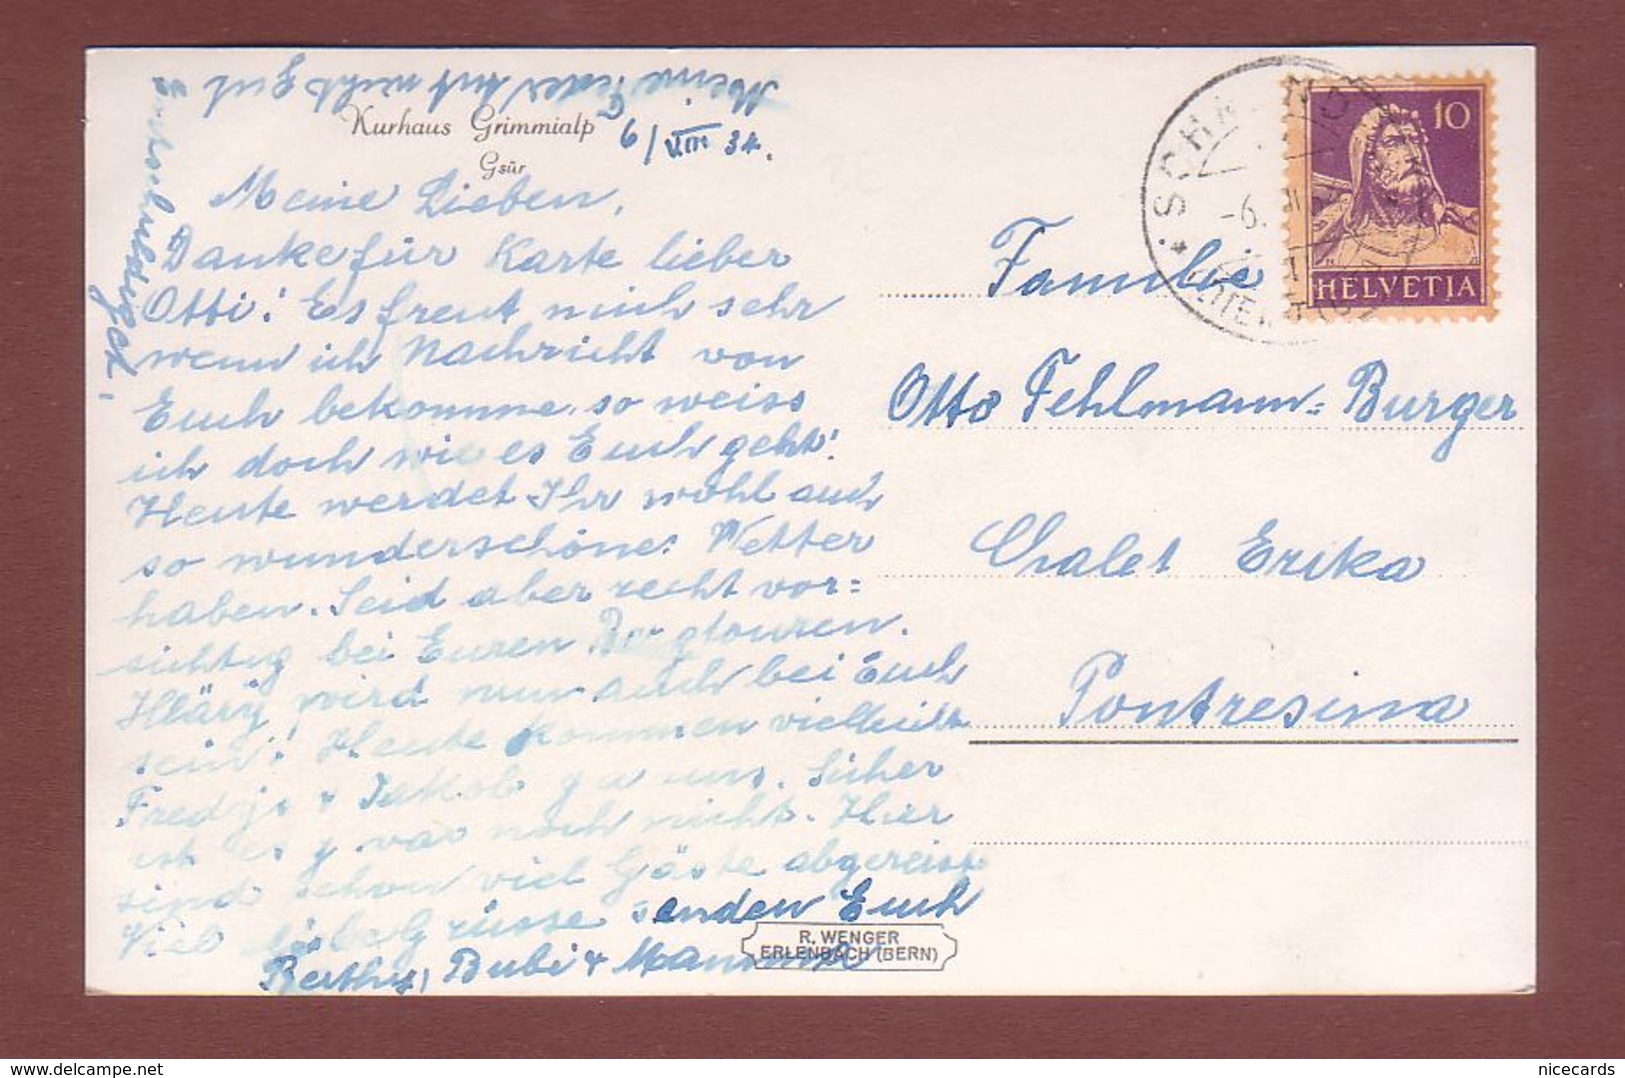 Kurhaus Grimmialp
Gsür
6/VIII 34.
Meine Lieben,
Danke für Karte lieber
Otti! Es freut mich sehr
wenn ich Nachricht von
Euch bekomme, so weiss
ich doch wie es Euch geht!
Heute werdet Ihr wohl auch
so wunderschönes Wetter
haben. Seid aber recht vor=
sichtig bei Euren Bergtouren.
Hläry wird nun auch bei Euch
sein! Heute kommen vielleicht
& Jakob zu uns. Sicher
ist es zwar noch nicht. Hier
sind schon viel Gäste abgereist.
Viel liebe Grüsse senden Euch
Berthy, Bubi & Mamma
Meine Feder tut nicht gut
Entschuldiget!
R. WENGER
ERLENBACH (BERN)
HELVETIA
10
-6.
Familie
Otto Fehlmann=Burger
Chalet Erika
Pontresina
nicecards delcampe.net
nicecards